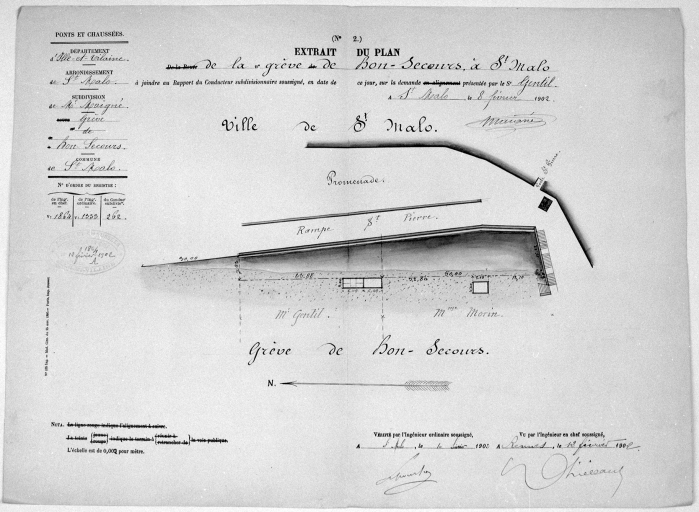 PONTS ET CHAUSSÉES.
DÉPARTEMENT
d'Ille-et-Vilaine.
ARRONDISSEMENT
de St Malo.
SUBDIVISION
de Mr
Grève
de
Bon Secours.
COMMUNE
de St Malo.
N° D'ORDRE DU REGISTRE :
de l'Ingr en chef.
de l'Ingr ordinaire.
du Conducteur subdivisre.
262.
(N° 2.)
EXTRAIT DU PLAN
de la grève de Bon-Secours, à St Malo
à joindre au Rapport du Conducteur subdivisionnaire soussigné, en date de ce jour, sur la demande en alignement présentée par le Sr Gentil.
A St Malo, le 8 février 1902
Ville de St Malo.
Promenade.
Rampe St Pierre.
Mr Gentil.
Mme Morin.
Grève de Bon-Secours.
N.
NOTA. La ligne rouge indique l'alignement à suivre.
La teinte jaune rouge indique le terrain à réunir à retrancher de la voie publique.
L'échelle est de 0,002 pour mètre.
VÉRIFIÉ par l'Ingénieur ordinaire soussigné,
A St Malo, le 1902
VU par l'Ingénieur en chef soussigné,
A Rennes, le 12 février 1902